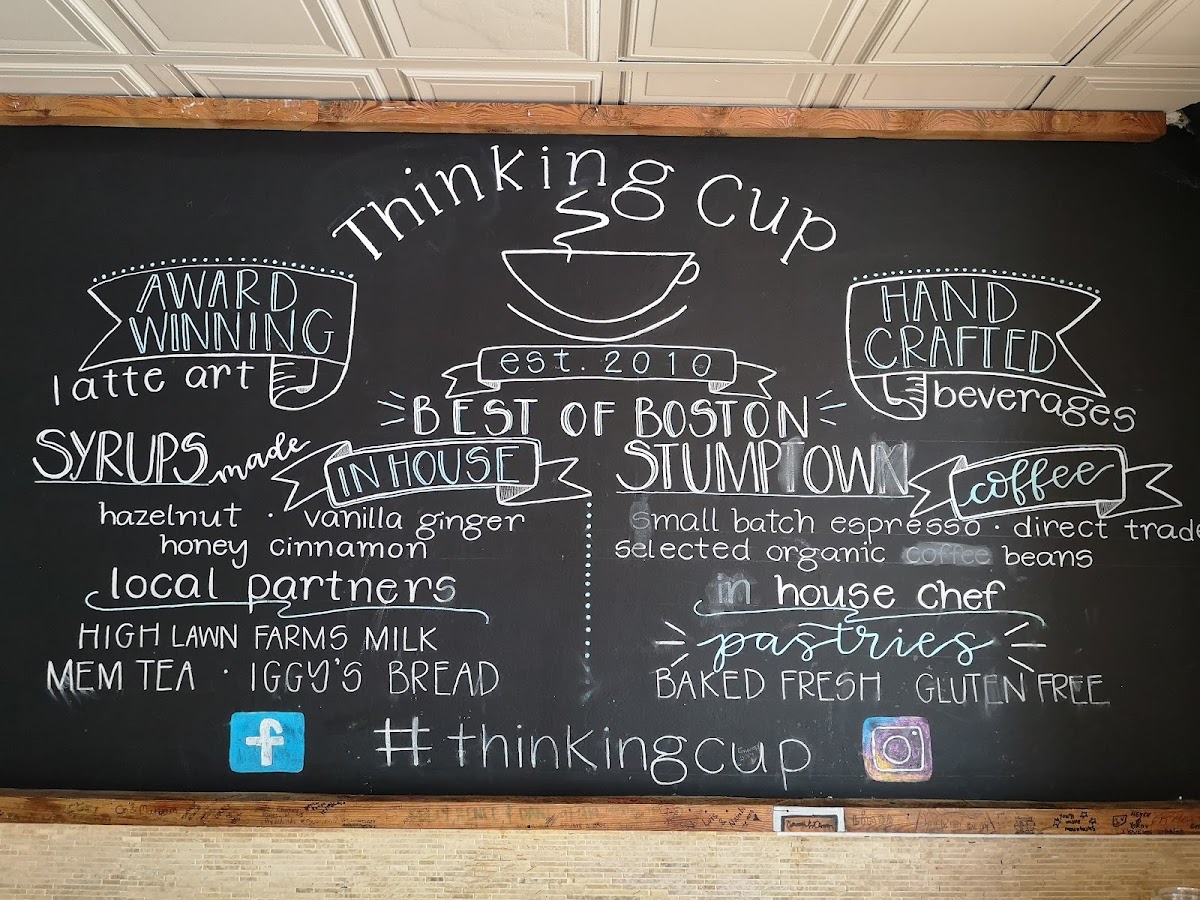 Thinking Cup
AWARD
WINNING
latte art
HAND
CRAFTED
beverages
est. 2010
BEST OF BOSTON
SYRUPS made IN HOUSE
hazelnut · vanilla ginger
honey cinnamon
local partners
HIGH LAWN FARMS MILK
MEM TEA · IGGY'S BREAD
STUMPTOWN coffee
small batch espresso · direct trade
selected organic coffee beans
in house chef
pastries
BAKED FRESH GLUTEN FREE
f
#thinkingcup